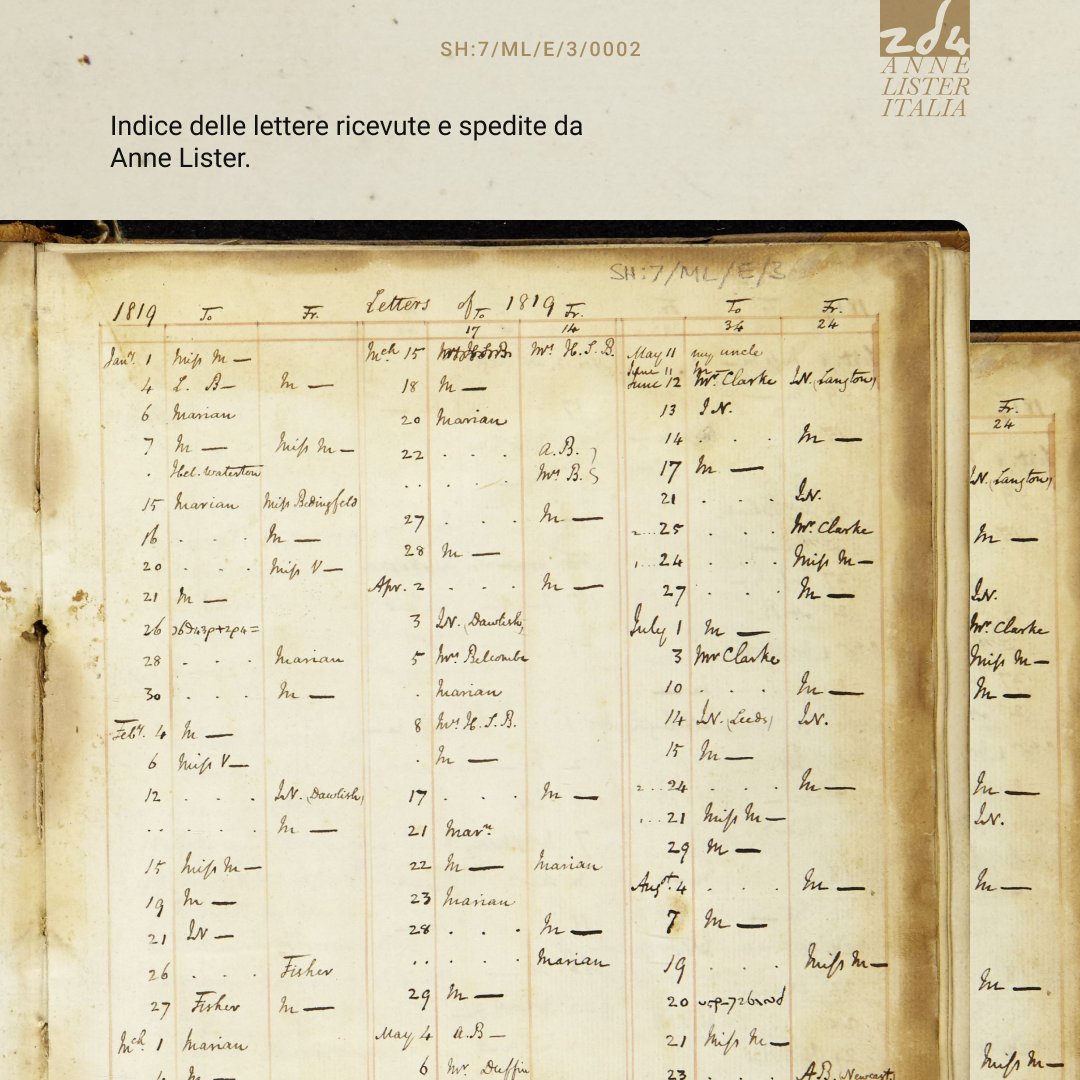 SH:7/ML/E/3/0002
ANNE
LISTER
ITALIA
Indice delle lettere ricevute e spedite da
Anne Lister.
SH:7/ML/E/3
1819 To Fr. Letters of 1819 To Fr. To Fr.
17 14 34 24
Jany. 1 Miss M—
4 L. B— M—
6 Marian
7 M— Miss M—
. Hbel. Waterton
15 Marian Miss Bedingfeld
16 . . . M—
20 . . . Miss V—
21 M—
26
28 . . . Marian
30 . . . M—
Feby. 4 M—
6 Miss V—
12 . . . I.N. (Dawlish)
.. . . . M—
15 Miss M—
19 M—
21 I.N—
26 . . . Fisher
27 Fisher M—
Mch. 1 Marian
4. M—
Mch 15 Mrs H.S.B.
18 M—
20 Marian
22 . . . A.B.
.. . . . Mrs B.
27 . . . M—
28 M—
Apr. 2 . . . M—
3 I.N. (Dawlish)
5 Mrs Belcombe
. Marian
8 Mrs H.S.B.
. M—
17 . . . M—
21 Marn
22 M— Marian
23 Marian
28 . . . M—
.. . . . Marian
29 M—
May 4 A.B—
6 Mr. Duffin
May 11 my uncle
June 11 M
June 12 Mr. Clarke I.N. (Langton)
13 I.N.
14 . . . M—
17 M—
21 . . . I.N.
2...25 . . . Mr. Clarke
1...24 . . . Miss M—
27 . . . M—
July 1 M—
3 Mr Clarke
10 . . . M—
14 I.N. (Leeds) I.N.
15 M—
2...24 . . . M—
1...21 Miss M—
29 M—
Augst. 4 . . . M—
7 M—
19 . . . Miss M—
20
21 Miss M—
23 . . . A.B. (Newcast.
Fr.
24
I.N. (Langton)
M—
I.N.
Mr. Clarke
Miss M—
M—
M—
I.N.
M—
M—
Miss M—